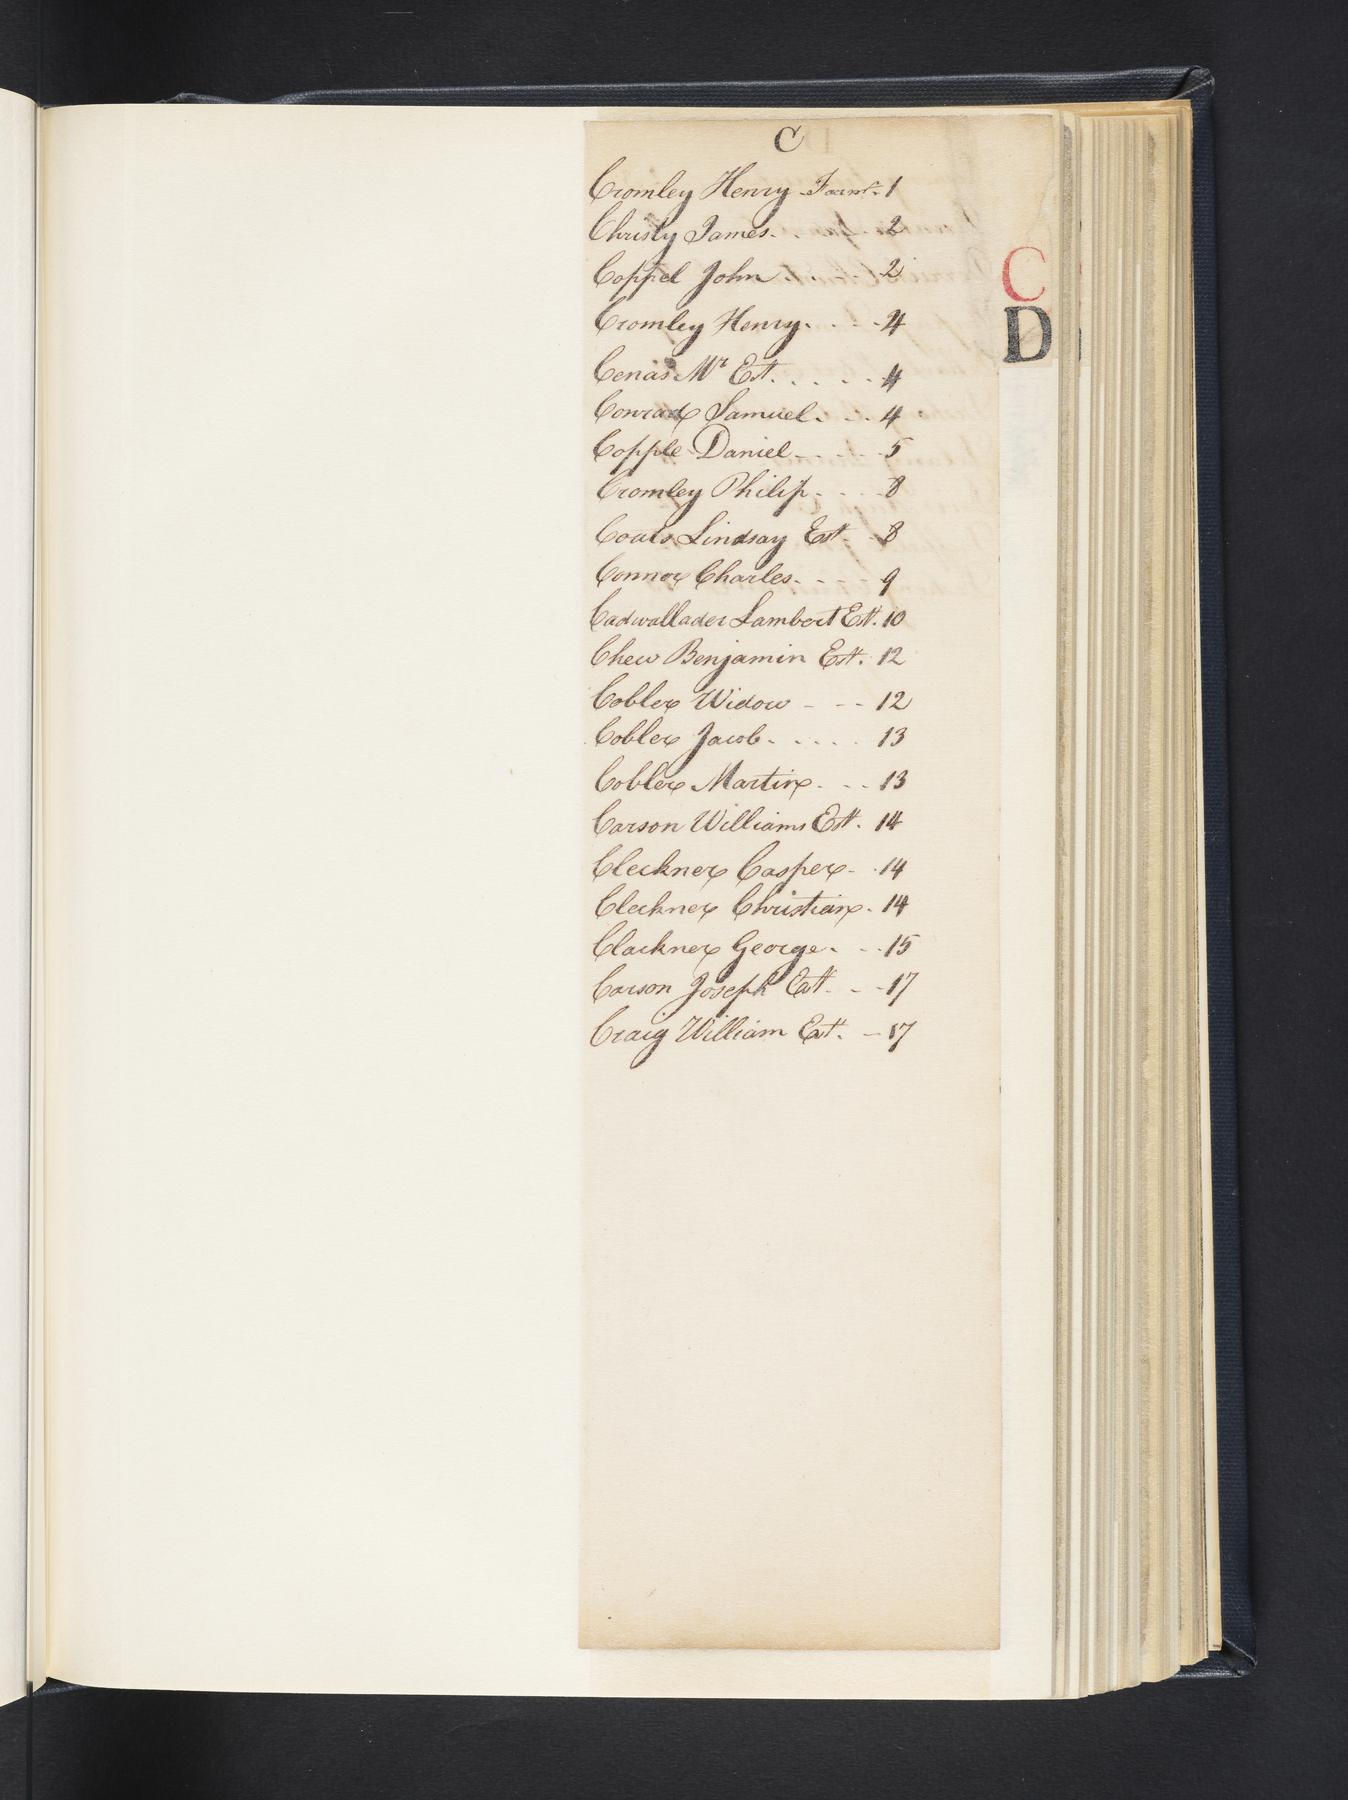 C
Cromley Henry Farmr. 1
Christy James. . . 2
Coppel John . . . 2
Cromley Henry. . . . 4
Cenas Mr Est. . . . . . 4
Conrad Samuel. . . 4
Copple Daniel - - - - 5
Cromley Philip. - - - 8
Coats Lindsay Est. - 8
Connor Charles. - - - 9
Cadwallader Lambert Est. 10
Chew Benjamin Est. 12
Cobler Widow - - - 12
Cobler Jacob. . . . . 13
Cobler Martin. - - 13
Carson Williams Est. 14
Cleckner Casper. . 14
Cleckner Christian. 14
Clackner George. - . 15
Carson Joseph Est. - - 17
Craig William Est. - 17
C
D